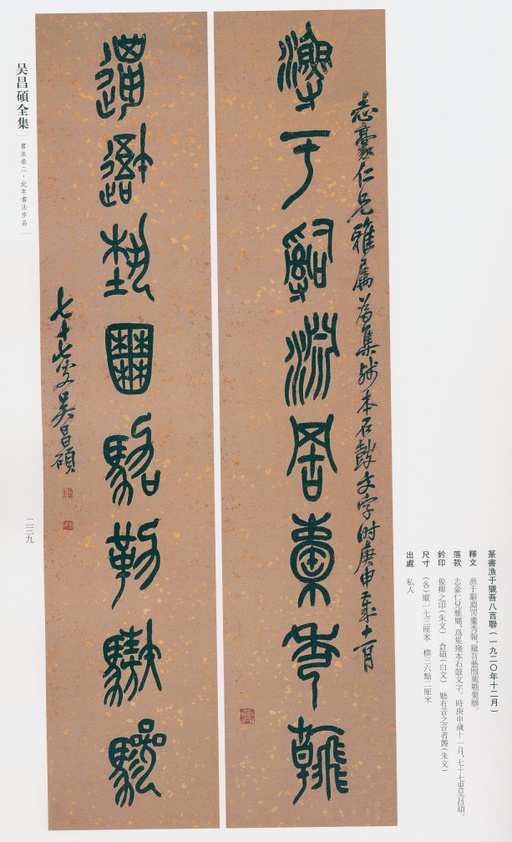 篆書漁于獵吾八言聯(一九二〇年十二月)
釋文 漁于辭淵秀翰,獵吾藝囿
落款 志豪仁兄雅屬,爲集殘本石鼓文字。時庚申歲十一月,七十七叟吳昌碩。
鈐印 俊卿之印(朱文) 倉碩(白文) 聽有音之音者(朱文)
尺寸 (各)縱一七三厘米 橫三六點二厘米
出處 私人
志豪仁兄雅屬為集殘本石鼓文字時庚申歲十一月
漁于辭淵秀翰
吾藝囿勒
七十七叟吳昌碩
吴昌碩全集
書法卷二·紀年書法作品
二三九